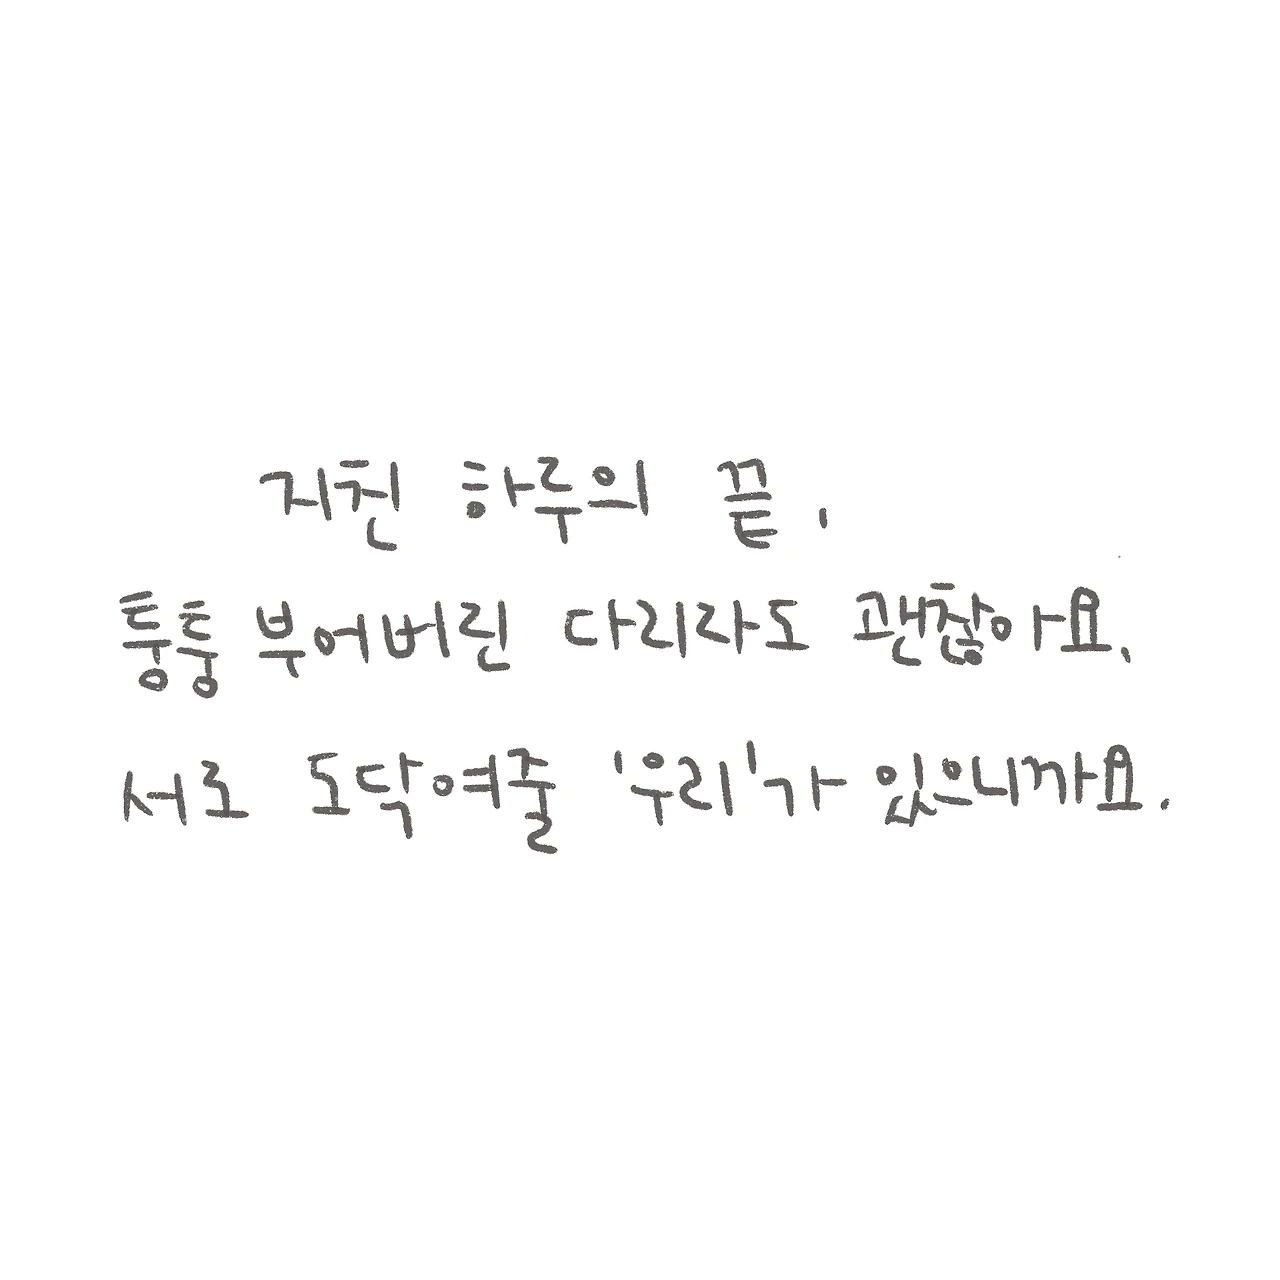 지친 하루의 끝,
퉁퉁 부어버린 다리라도 괜찮아요,
서로 도닥여줄 '우리'가 있으니까요.